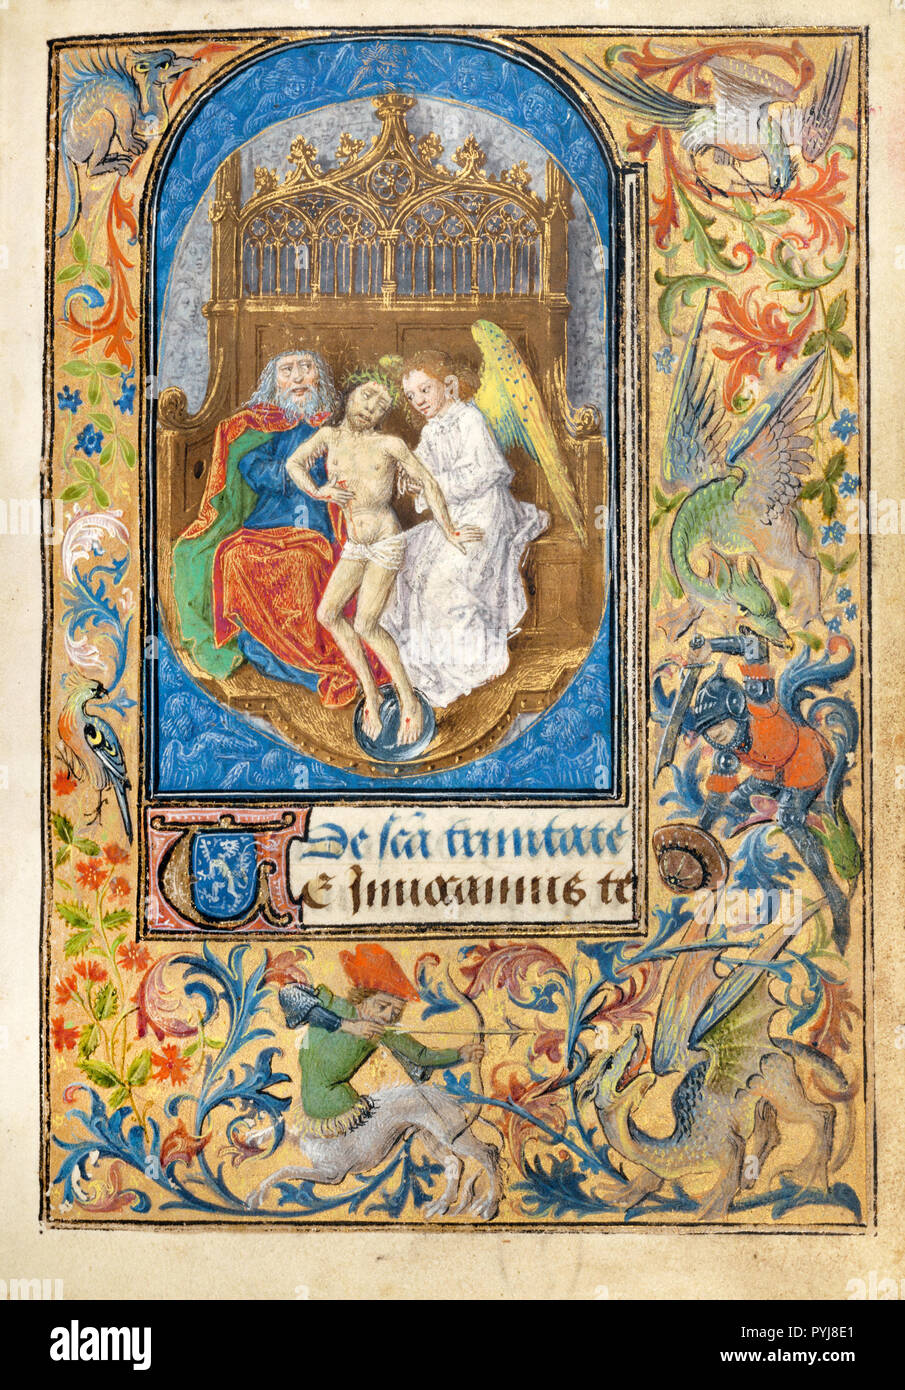 De scã trinitate
TE Inuocamus te
alamy
Image ID: PYJ8E1
www.alamy.com